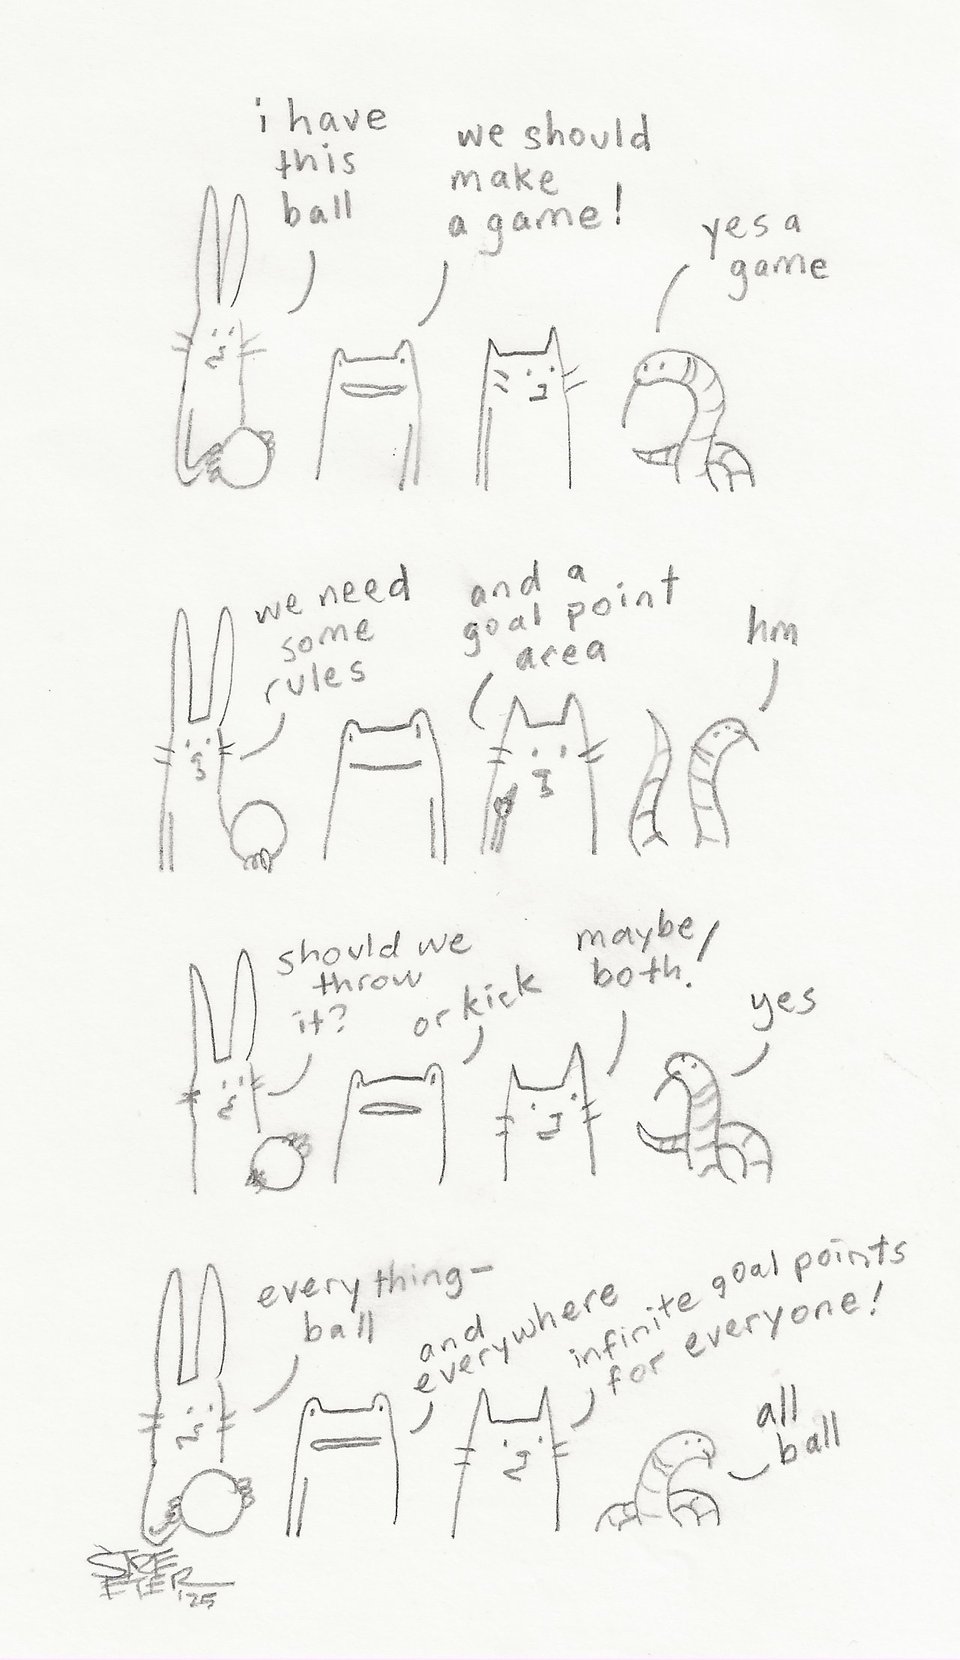 i have
this
ball
we should
make
a game!
yes a
game
we need
some
rules
and a
goal point
area
hm
should we
throw
it?
or kick
maybe
both!
yes
everything-
ball
and
everywhere
infinite goal points
for everyone!
all
ball
'25